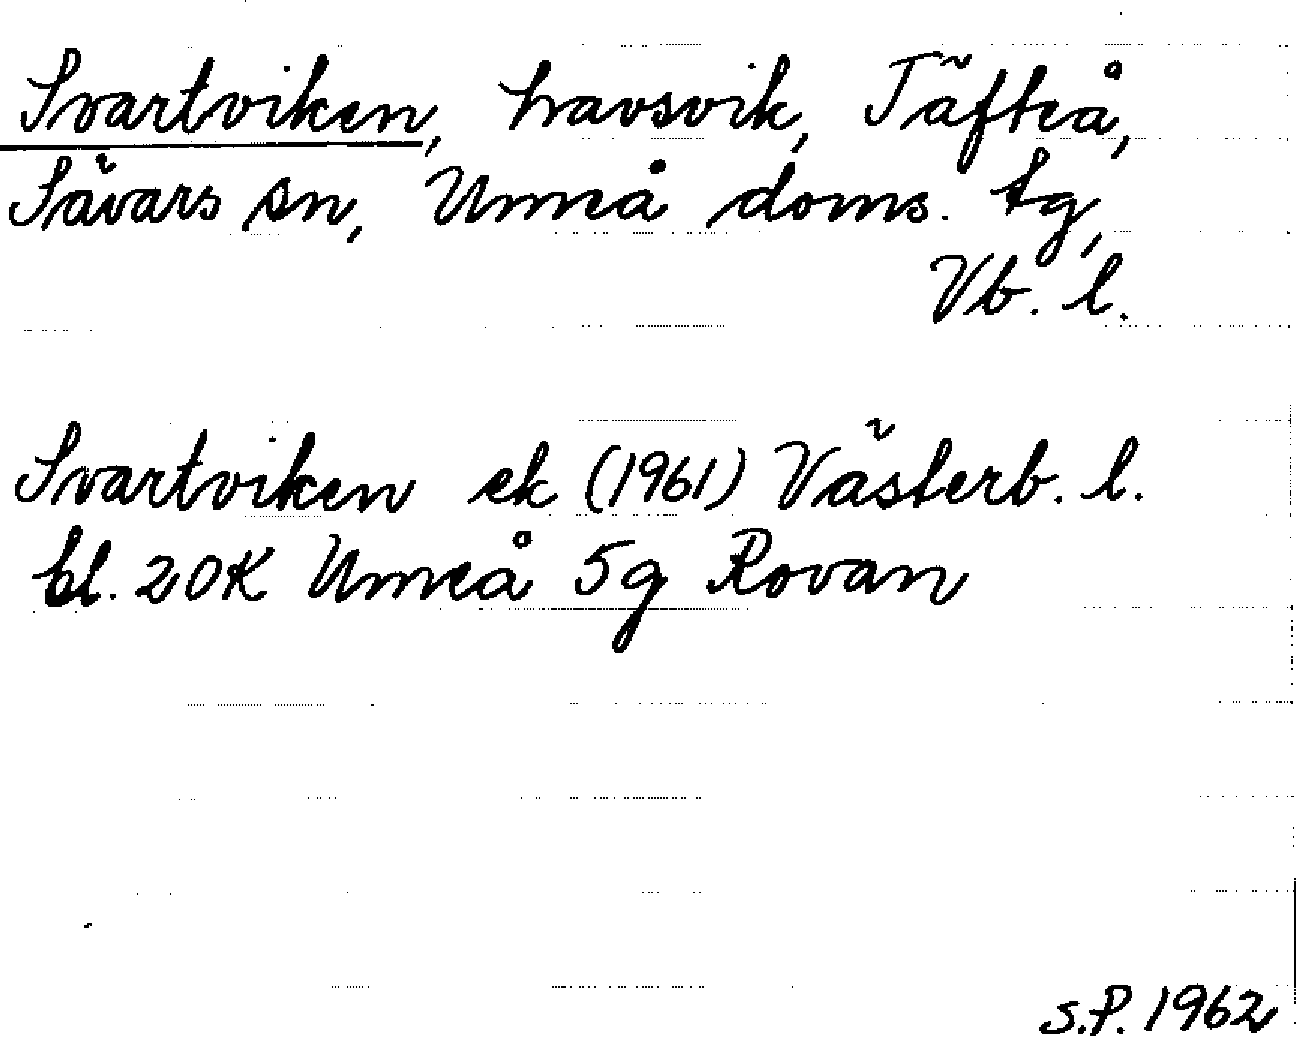 Svartviken, havsvik, Täfteå,
Sävars sn, Umeå doms. tg,
Vb. l.
Svartviken ek (1961) Västerb. l.
bl. 20K Umeå 5g Rovan
S.P. 1962